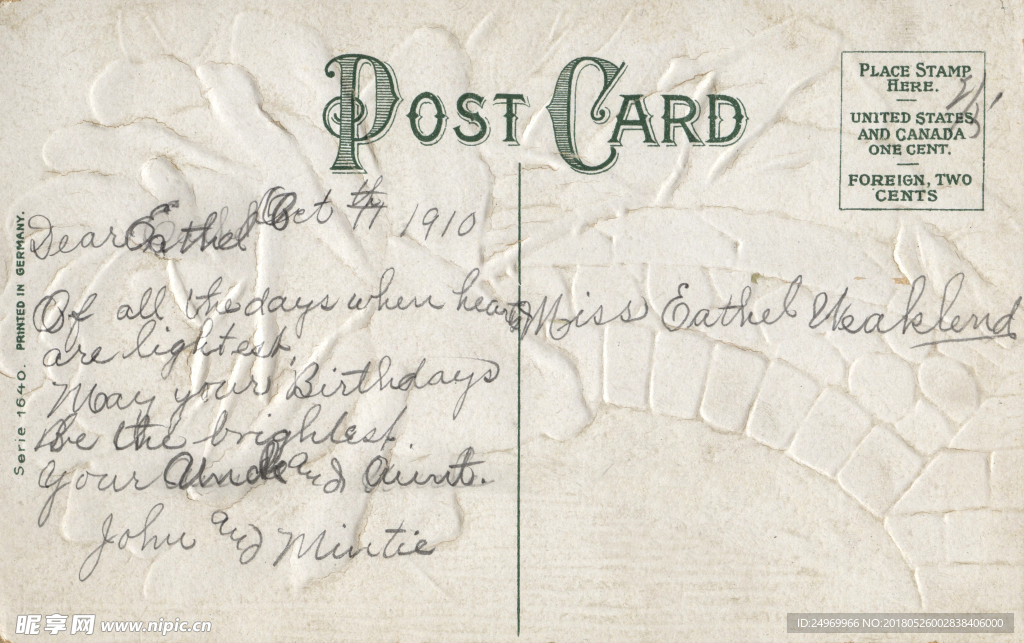 POST CARD
PLACE STAMP
HERE.
UNITED STATES
AND CANADA
ONE CENT.
FOREIGN, TWO
CENTS
Serie 1640. PRINTED IN GERMANY.
Oct 1910
Dear Eathel
Of all the days when hearts
are lightest,
May your Birthdays
Be the brightest.
Your Uncle and Aunt.
John and Mintie
Miss Eathel Weaklend
昵享网 www.nipic.cn
ID:24969966 NO:20180526002838406000